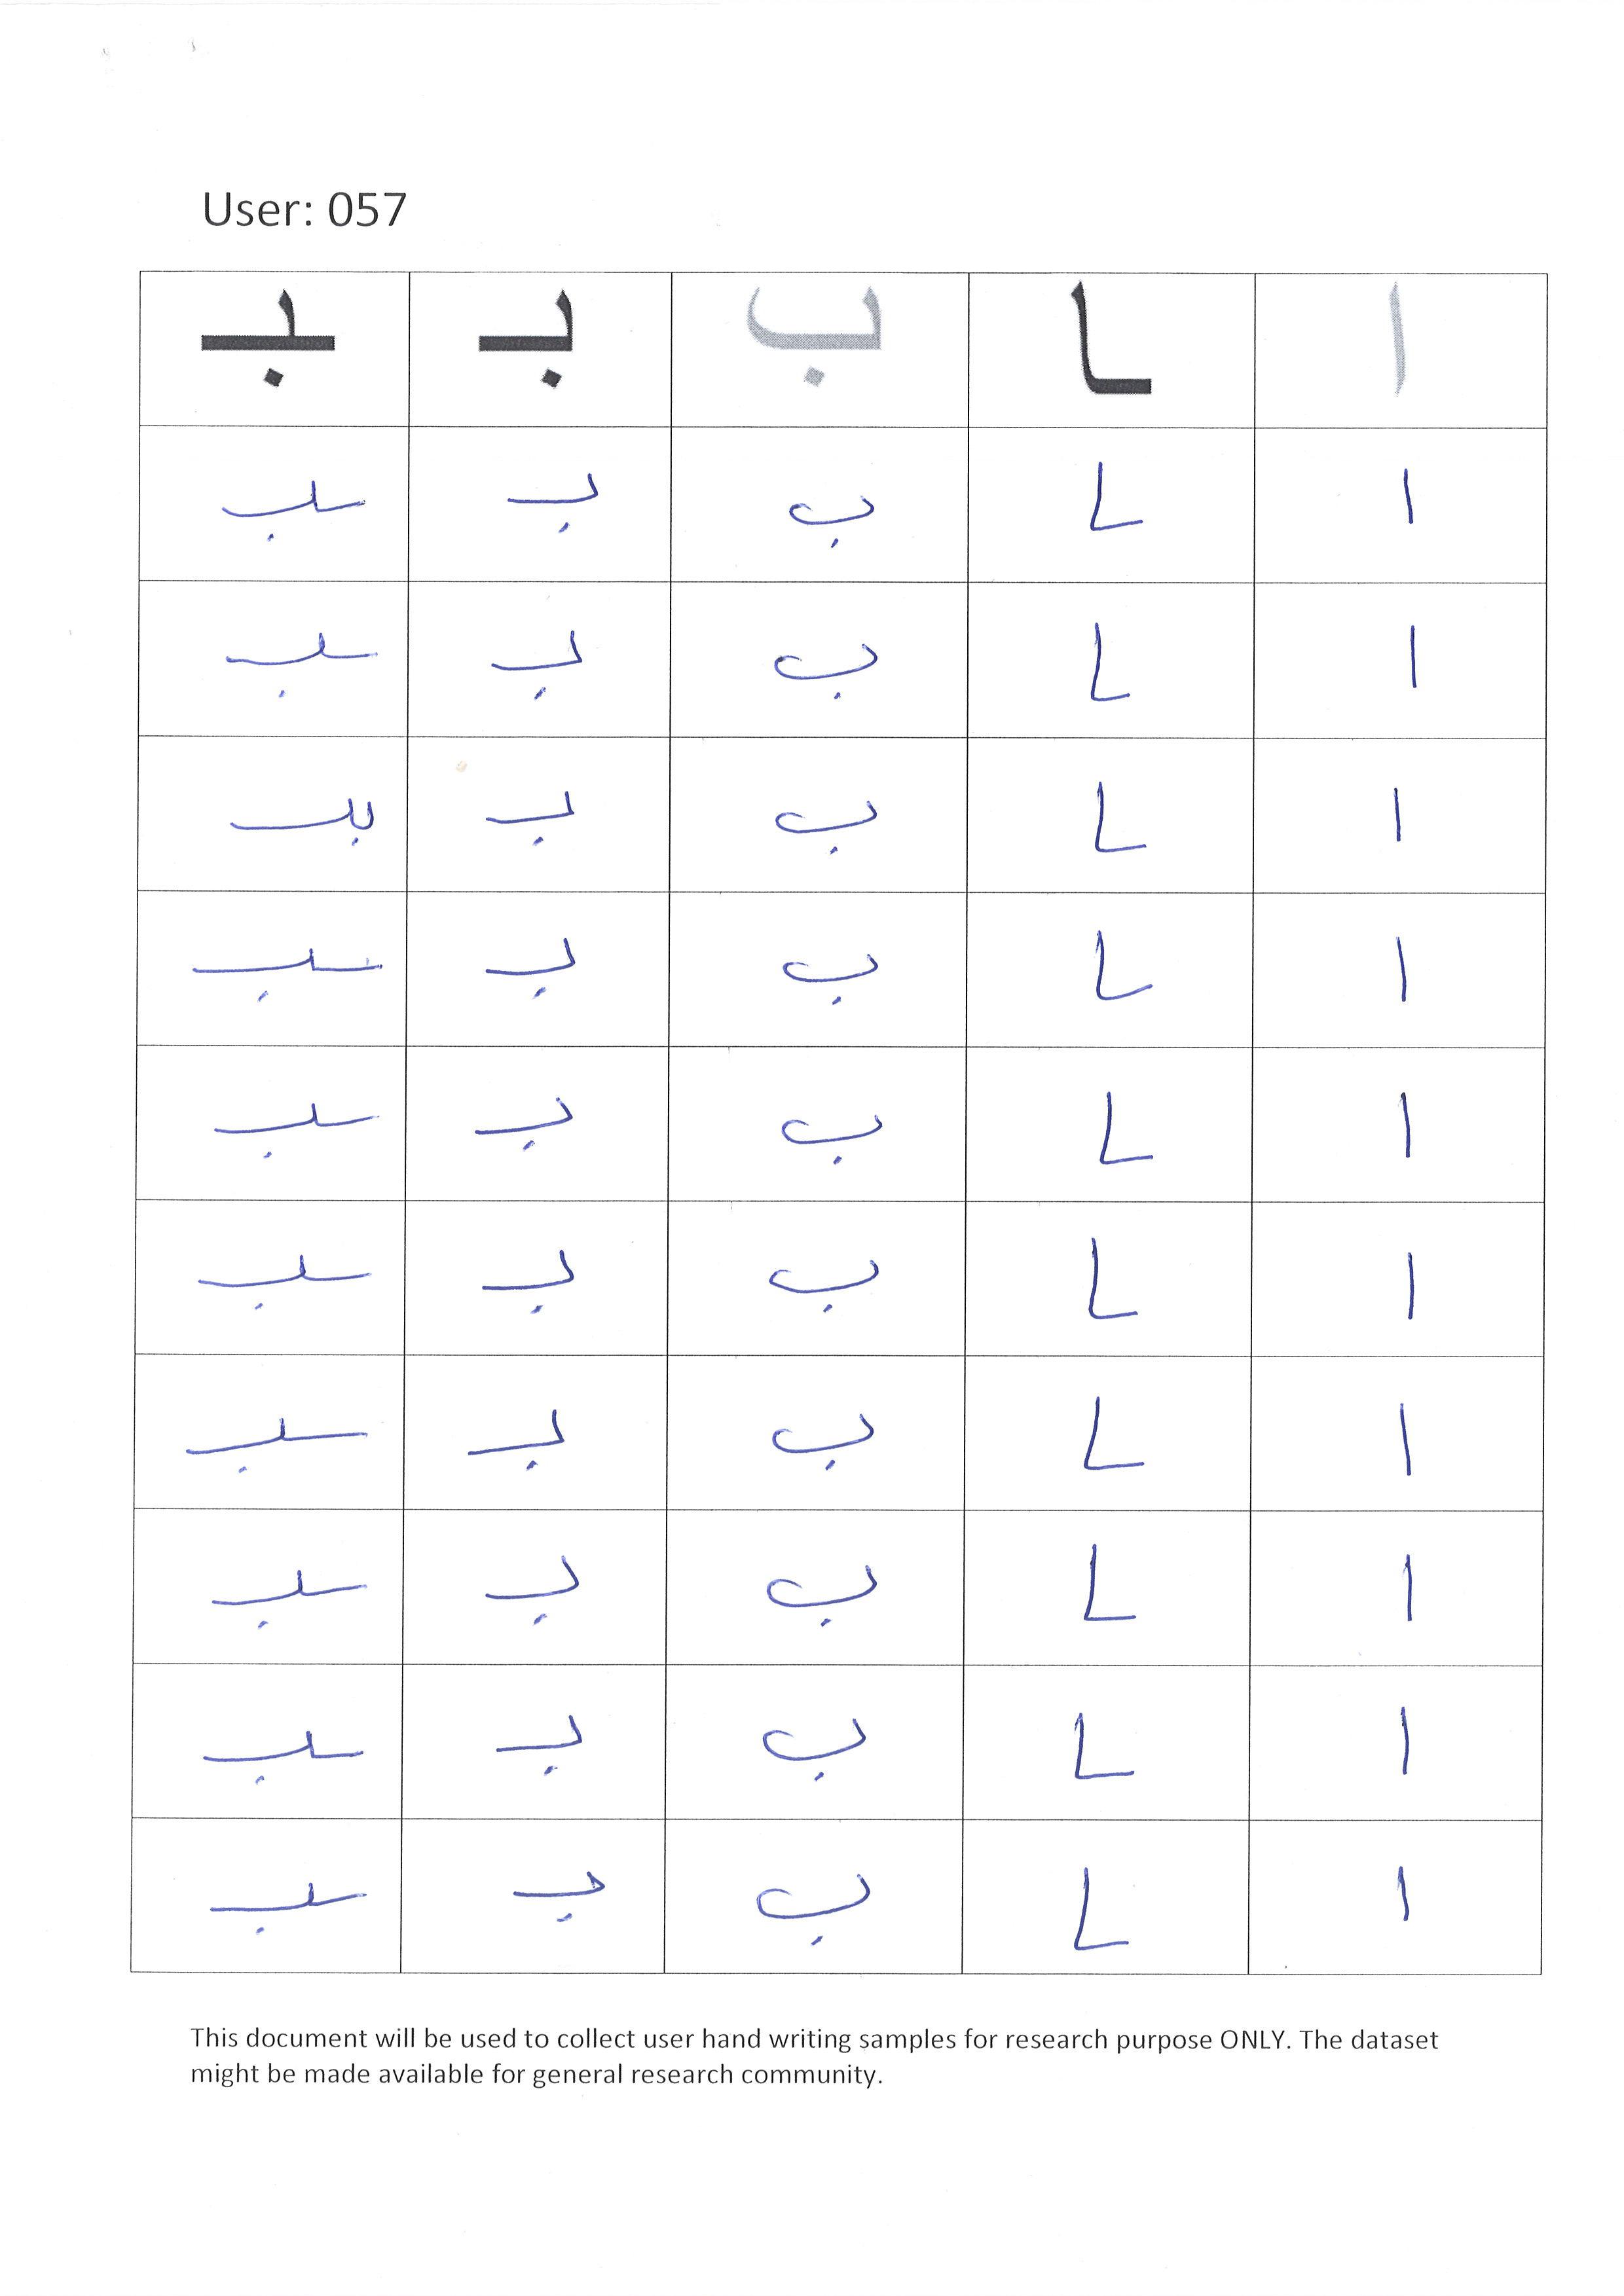 User: 057
ا ـا ب بـ ـبـ
ا ـا ب بـ ـبـ
ا ـا ب بـ ـبـ
ا ـا ب بـ
ا ـا ب بـ ـبـ
ا ـا ب بـ ـبـ
ا ـا ب بـ ـبـ
ا ـا ب بـ ـبـ
ا ـا ب بـ ـبـ
ا ـا ب بـ ـبـ
ا ـا ب بـ ـبـ
This document will be used to collect user hand writing samples for research purpose ONLY. The dataset
might be made available for general research community.